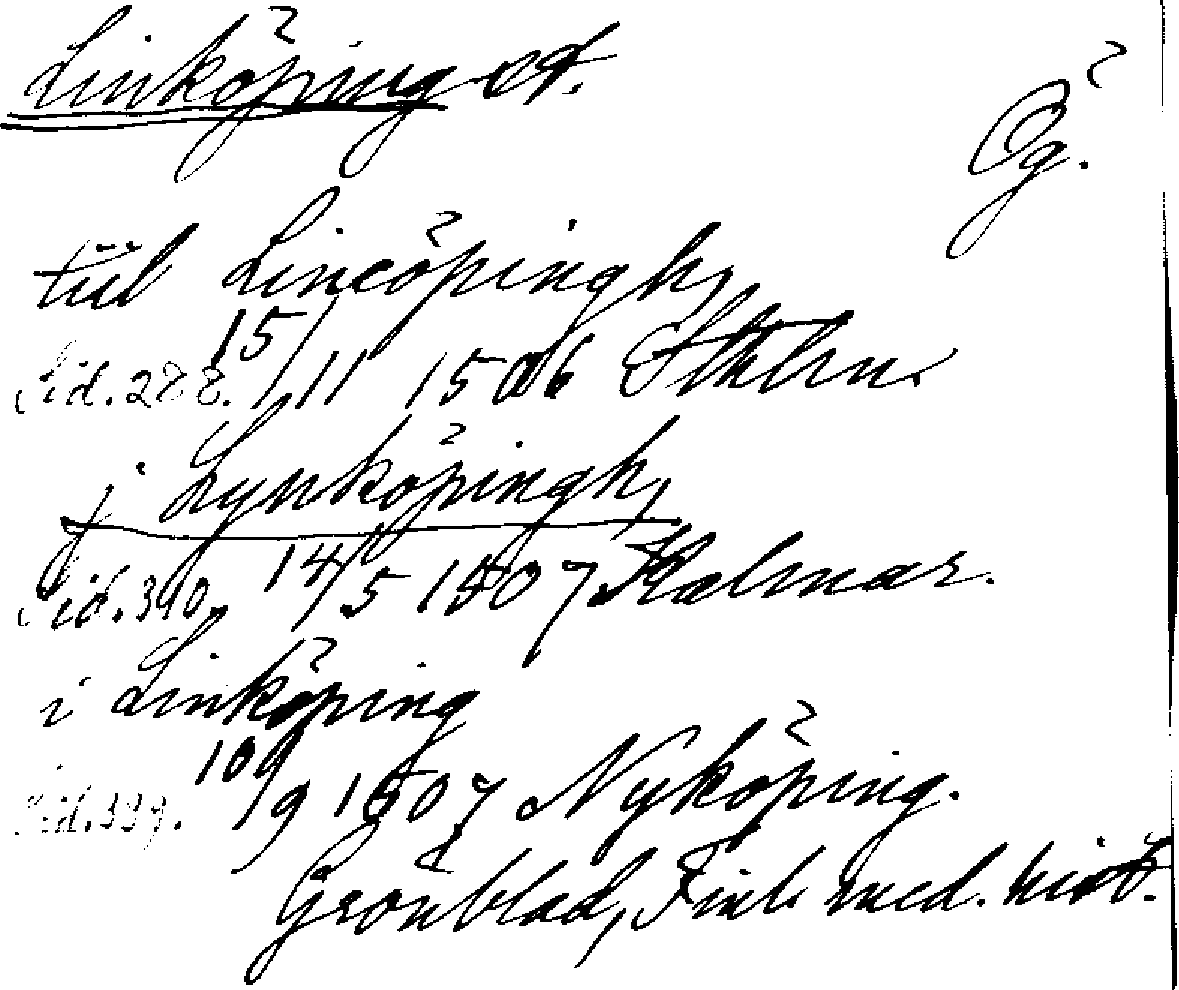 Linköping st.
Ög.
tiil Linköpingh,
Sid. 288. 15/11 1506 Sthlm.
j Lynköpingh,
Sid. 390. 14/5 1507 Kalmar.
i Linköping
Sid. 399. 10/9 1507 Nyköping.
Grönblad, Finl. med. hist.